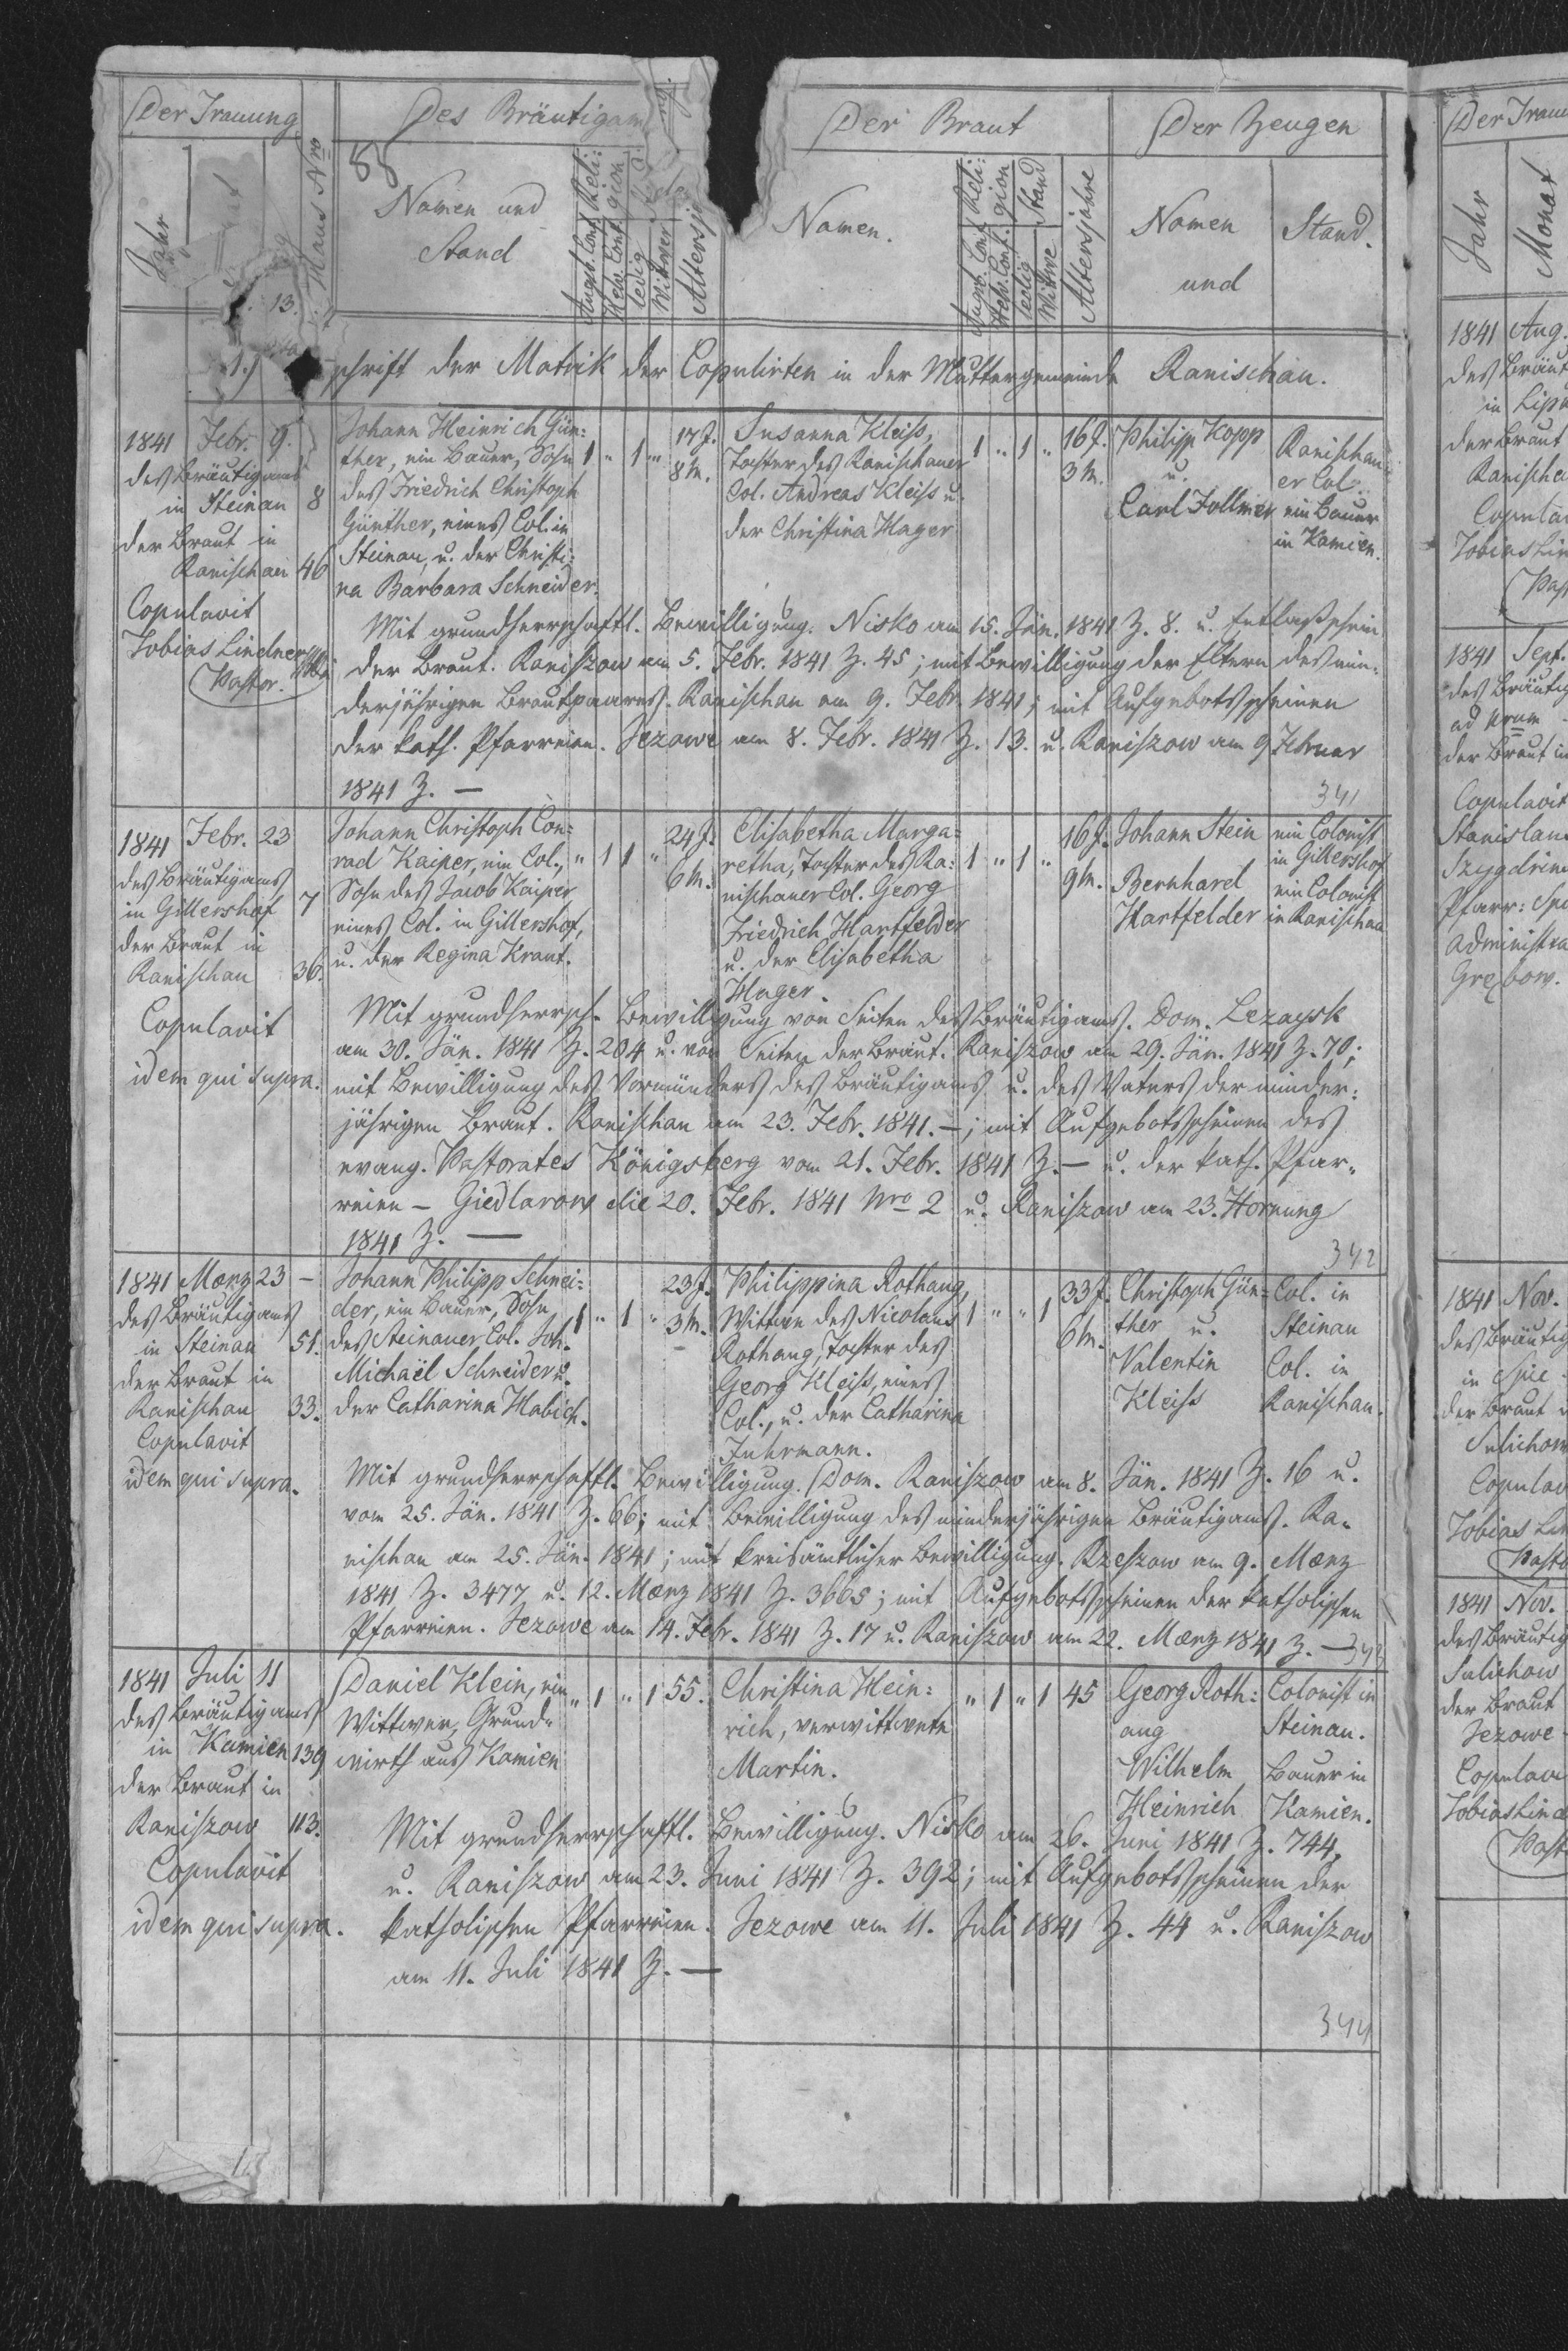 Der Trauung
Des Bräutigam
Der Braut
Der Zeugen
Der Trau
88
Jahr
Haus Nro
Namen und
Stand
Augsb. Conf.
Helv. Conf.
Reli:
gion
ledig
Witwer
Altersj
Namen.
Augsb. Conf.
Helv. Conf.
Reli:
gion
ledig
Witwe
Stand
Altersjahre
Namen
und
Stand.
Jahr
Monat
13.
1.)
schrift der Matrik der Copulirten in der Muttergemeinde Ranischau.
1841 Febr. 9.
des Bräutigams
in Steinau 8
der Braut in
Ranischau 46
Copulavit
Tobias Lindner
Pastor.
Johann Heinrich Gün:
ther, ein Bauer, Sohn
des Friedrich Christoph
Günther, eines Col. in
Steinau, u. der Christi:
na Barbara Schneider.
1 " 1 "
17 J.
8 M.
Susanna Kleiss,
Tochter des Ranischauer
Col. Andreas Kleiss u.
der Christina Hager
1 " 1 "
16 J.
3 M.
Philipp Kopp
u.
Carl Follmer
Ranischau
er Col.
ein Bauer
in Kamien.
Mit grundherrschaftl. Bewilligung. Nisko am 15. Jän. 1841 Z. 8. u. Entlaßschein
der Braut. Raniszow am 5. Febr. 1841 Z. 45; mit Bewilligung der Eltern des min:
derjährigen Brautpaares. Ranischau am 9. Febr. 1841; mit Aufgebotsscheinen
der kath. Pfarreien. Jezowe am 8. Febr. 1841 Z. 13. u. Raniszow am 9 Februar
1841 Z. —
341
1841 Febr. 23
des Bräutigams
in Gillershof 7
der Braut in
Ranischau 36.
Copulavit
idem qui supra.
Johann Christoph Con:
rad Kaiper, ein Col.,
Sohn des Jacob Kaiper
eines Col. in Gillershof,
u. der Regina Kraut.
" 1 1 "
24 J.
6 M.
Elisabetha Marga:
retha, Tochter des Ra:
nischauer Col. Georg
Friedrich Hartfelder
u. der Elisabetha
Hager.
1 " 1 "
16 J.
9 M.
Johann Stein
Bernhard
Hartfelder
ein Colonist
in Gillershof
ein Colonist
in Ranischau
Mit grundherrsch. Bewilligung von Seiten des Bräutigams. Dom. Lezaysk
am 30. Jän. 1841 Z. 204 u. von Seiten der Braut. Raniszow am 29. Jän. 1841 Z. 70;
mit Bewilligung des Vormünders des Bräutigams u. des Vaters der minder:
jährigen Braut. Ranischau am 23. Febr. 1841. —; mit Aufgebotsscheinen des
evang. Pastorates Königsberg vom 21. Febr. 1841 Z. — u. der kath. Pfar:
reien — Giedlarow die 20. Febr. 1841 Nro 2 u. Raniszow am 23. Hornung
1841 Z. —
342
1841 Mærz 23 —
des Bräutigams
in Steinau 51.
der Braut in
Ranischau 33.
Copulavit
idem qui supra.
Johann Philipp Schnei:
der, ein Bauer, Sohn
des Steinauer Col. Joh.
Michaël Schneider u.
der Catharina Habich.
1 " 1 "
23 J.
3 M.
Philippina Rothaug,
Wittwe des Nicolaus
Rothaug, Tochter des
Georg Kleiss, eines
Col., u. der Catharina
Fuhrmann.
1 " " 1
33 J.
6 M.
Christoph Gün:
ther u.
Valentin
Kleiss
Col. in
Steinau
Col. in
Ranischau.
Mit grundherrschaftl. Bewilligung. Dom. Raniszow am 8. Jän. 1841 Z. 16 u.
vom 25. Jän. 1841 Z. 66; mit Bewilligung des minderjährigen Bräutigams. Ra:
nischau am 25. Jän. 1841; mit kreisämtlicher Bewilligung. Rzeszow am 9. Mærz
1841 Z. 3477 u. 12. Mærz 1841 Z. 3665; mit Aufgebotsscheinen der katholischen
Pfarreien. Jezowe am 14. Febr. 1841 Z. 17 u. Raniszow am 22. Mærz 1841 Z. —
343
1841 Juli 11
des Bräutigams
in Kamien 139
der Braut in
Raniszow 113.
Copulavit
idem qui supra.
Daniel Klein, ein
Wittwer, Grund:
wirth aus Kamien
" 1 " 1 55.
Christina Hein:
rich, verwittwete
Martin.
" 1 " 1 45
Georg Roth:
aug
Wilhelm
Heinrich
Colonist in
Steinau.
Bauer in
Kamien.
Mit grundherrschaftl. Bewilligung. Nisko am 26. Juni 1841 Z. 744,
u. Raniszow am 23. Juni 1841 Z. 392; mit Aufgebotsscheinen der
katholischen Pfarreien. Jezowe am 11. Juli 1841 Z. 44 u. Raniszow
am 11. Juli 1841 Z. —
344
1841 Aug.
des Bräut
in Lip
der Braut
Ranischa
Copula
Tobias Lin
Pas
1841 Sept.
des Bräutig
ad Nrum
der Braut in
Copulavit
Stanislau
Szygdrin
Pfarr: Sp
administra
Grębow.
1841 Nov.
des Bräutig
in Spie
der Braut
Sulichow
Copulav
Tobias Lin
Past
1841 Nov.
des Bräutig
Sulichow
der Braut
Jezowe
Copulav
Tobias Lind
Past